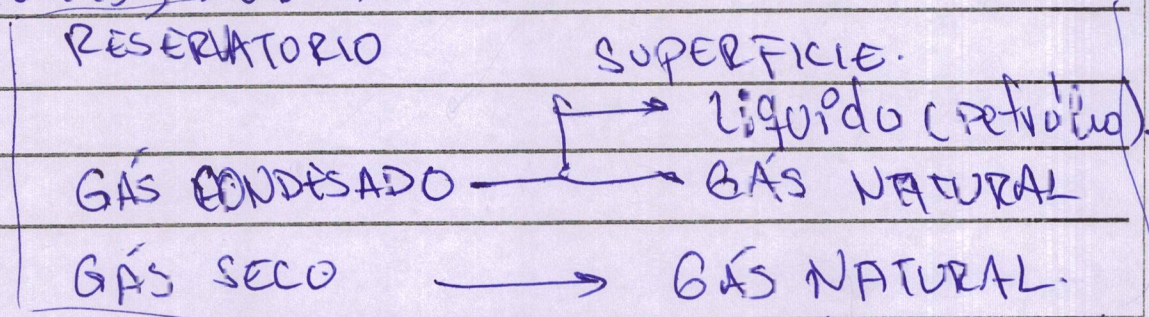 RESERVATORIO SUPERFICIE.
Líquido (petróleo).
GÁS CONDESADO GÁS NATURAL
GÁS SECO GÁS NATURAL.